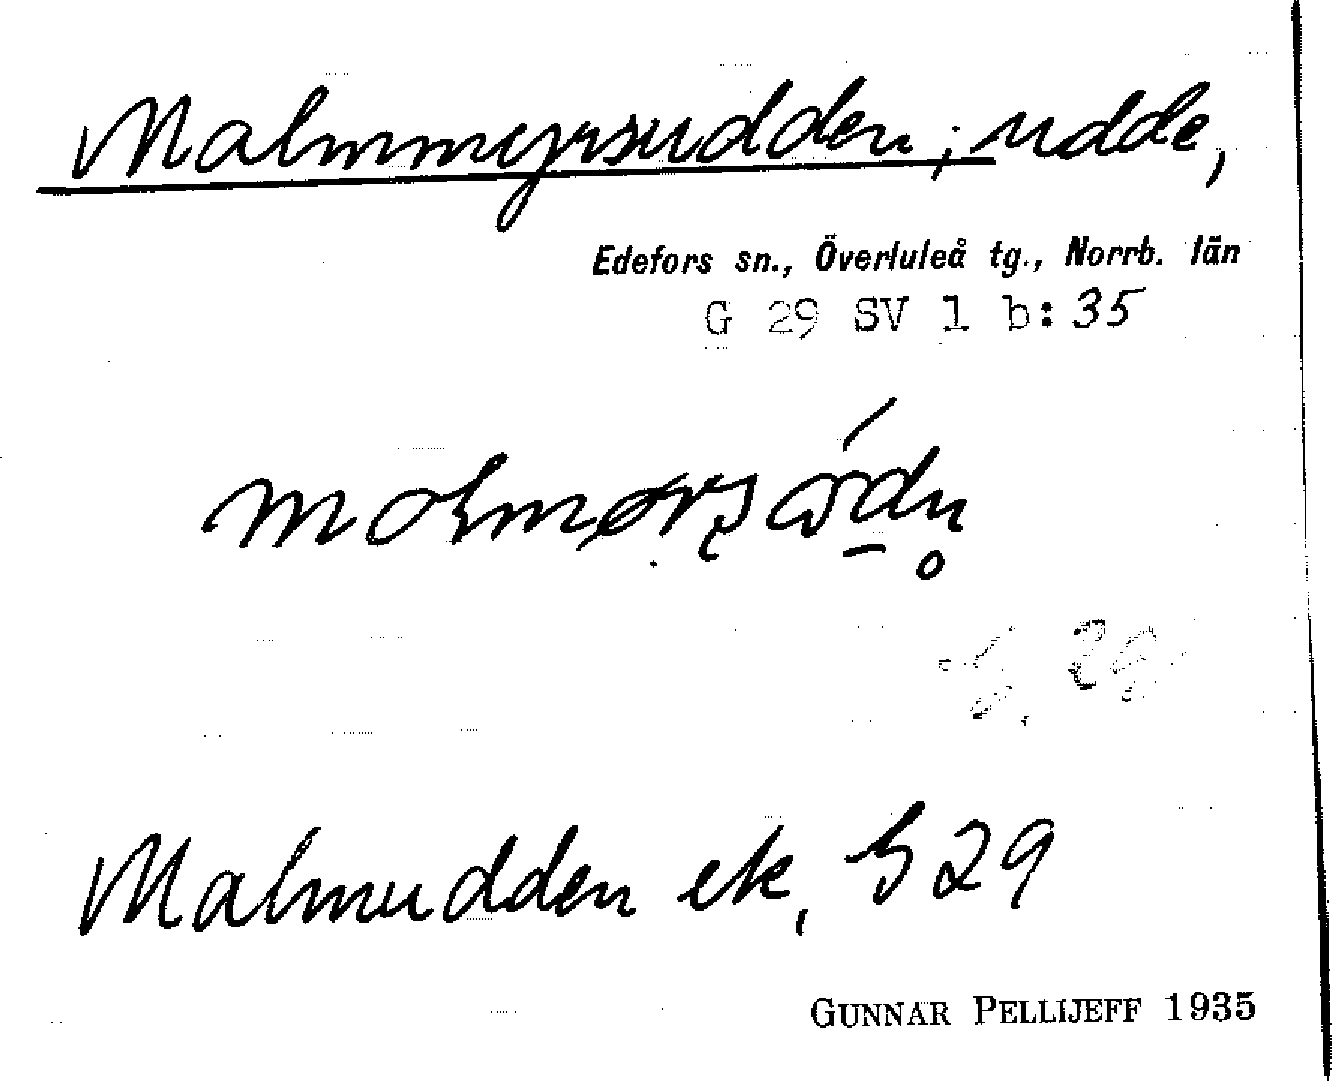 Malmmyrsudden, udde,
Edefors sn., Överluleå tg., Norrb. län
G 29 SV 1 b: 35
Malmudden ek, G 29
GUNNAR PELLIJEFF 1935